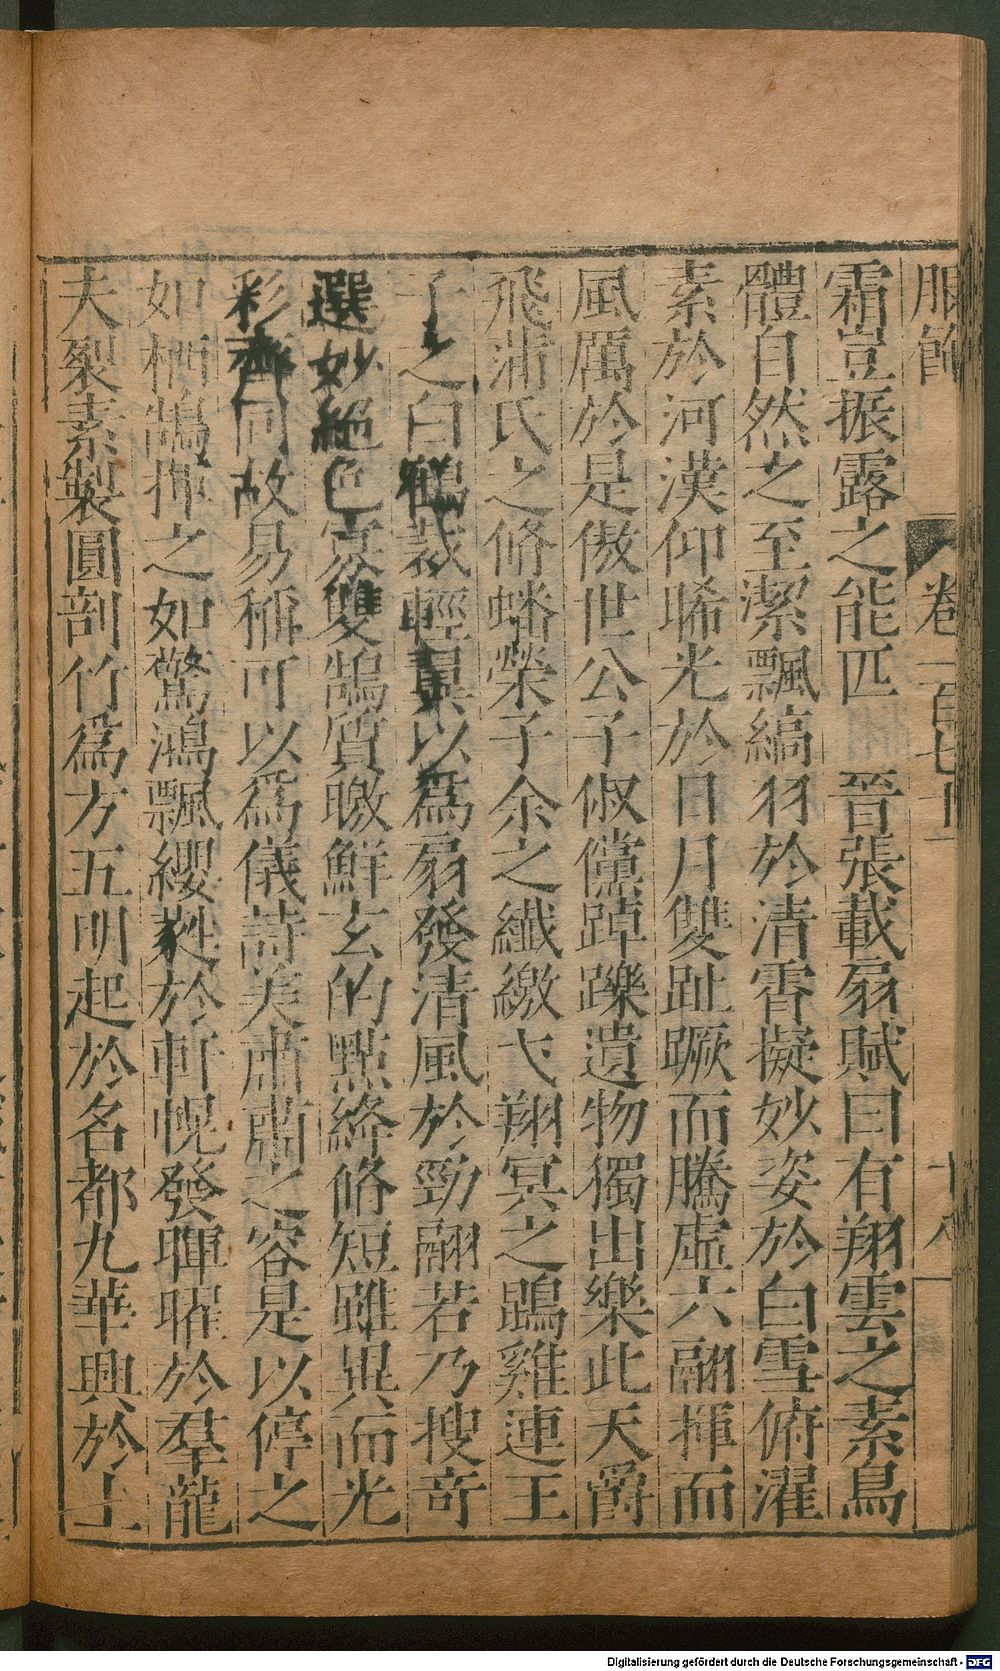 服飾 卷一百七十一 十八
霜豈振露之能匹 晉張載扇賦曰有翔雲之素鳥
體自然之至潔飄縞羽於清霄擬妙姿於白雪俯濯
素於河漢仰晞光於日月雙趾蹶而騰虛六翮揮而
風厲於是傲世公子俶儻踔躒遺物獨出樂此天爵
飛蒲氏之脩蟠榮子余之纖繳弋翔冥之鵾雞連王
子之白鶴裁輕翼以爲扇發清風於勁翮若乃搜奇
選妙絕色寡雙鵠質皦鮮玄的點絳脩短雖異而光
彩齊同故易稱可以爲儀詩美肅肅之容是以停之
如栖鵠揮之如驚鴻飄纓蕤於軒幌發暉曜於羣龍
夫裂素製圓剖竹爲方五明起於名都九華興於上
Digitalisierung gefördert durch die Deutsche Forschungsgemeinschaft - DFG